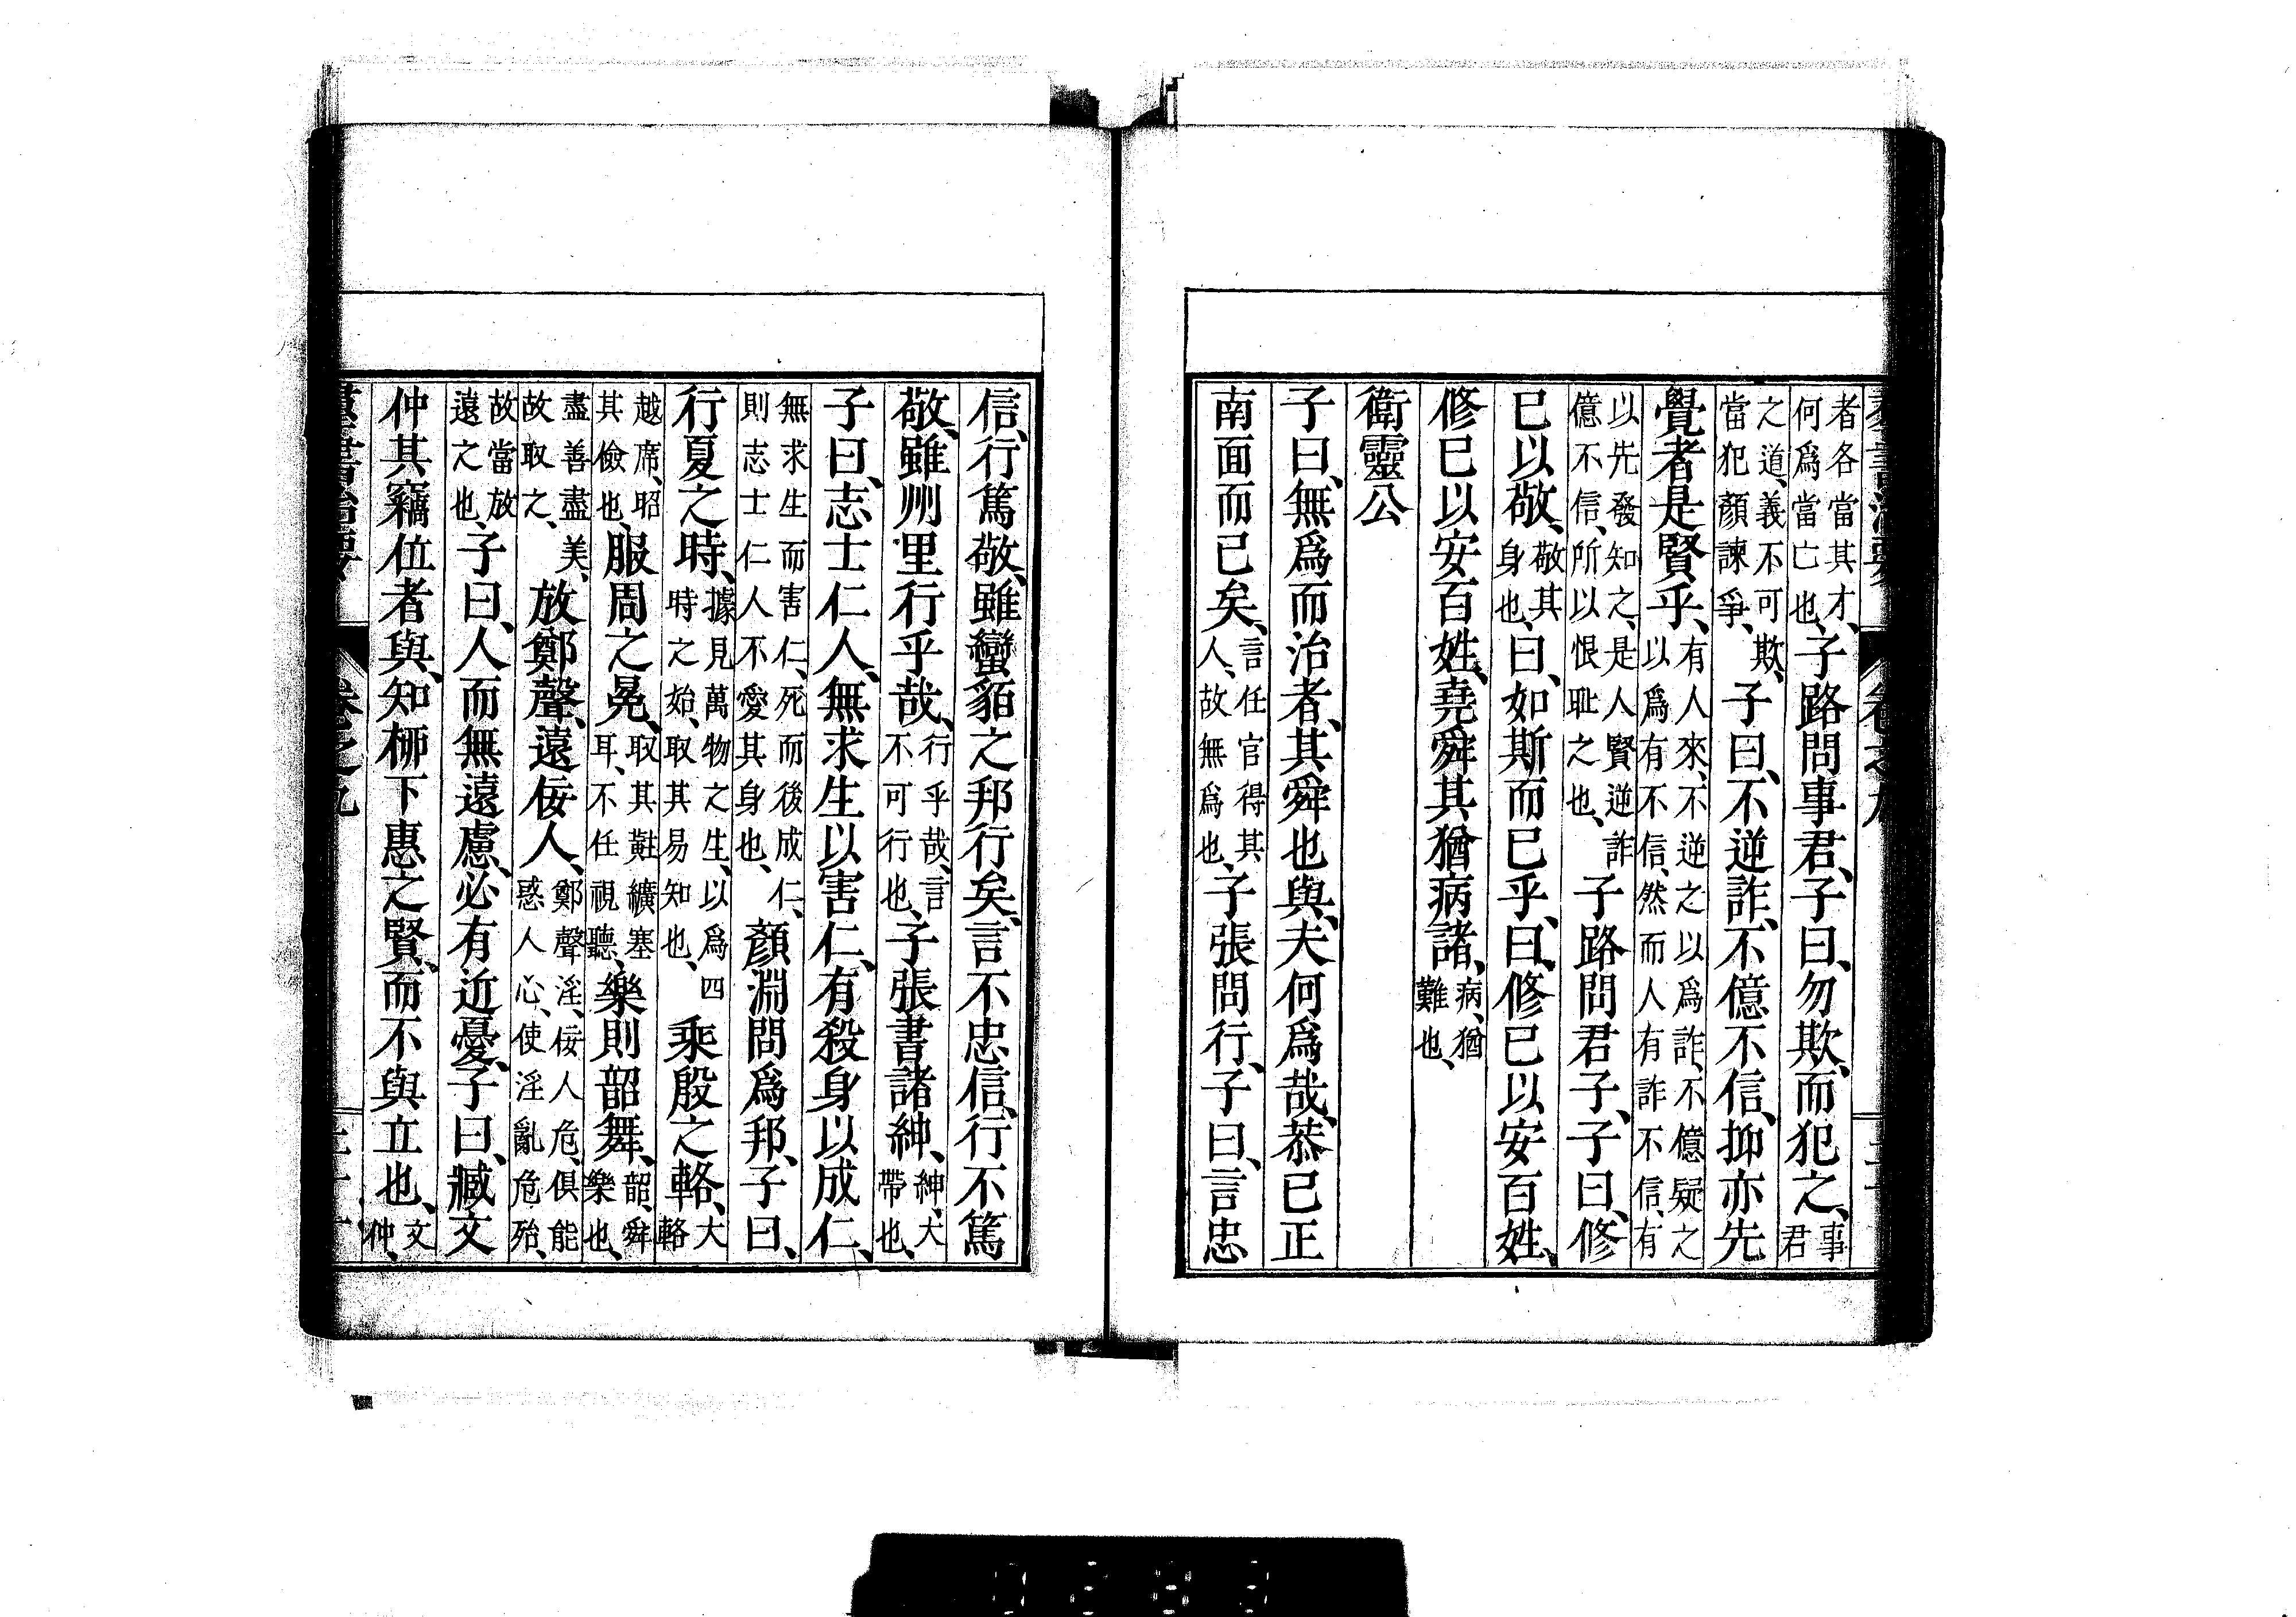 者各當其才、何爲當亡也、子路問事君、子曰、勿欺、而犯之、事君
之道、義不可欺、當犯顏諫爭、子曰、不逆詐、不億不信、抑亦先
覺者是賢乎、有人來、不逆之以爲詐、不億疑之以爲有不信、然而人有詐不信、有
以先發知之、是人賢逆詐億不信、所以恨耻之也、子路問君子、子曰、修
已以敬、敬其身也、曰、如斯而已乎、曰、修已以安百姓、
修已以安百姓、堯舜其猶病諸、病、猶難也、
衛靈公
子曰、無爲而治者、其舜也與、夫何爲哉、恭已正
南面而已矣、言任官得其人、故無爲也、子張問行、子曰、言忠
信、行篤敬、雖蠻貊之邦行矣、言不忠信、行不篤
敬、雖州里行乎哉、行乎哉、言不可行也、子張書諸紳、紳、大帶也、
子曰、志士仁人、無求生以害仁、有殺身以成仁、
無求生而害仁、死而後成仁、則志士仁人不愛其身也、顏淵問爲邦、子曰、
行夏之時、據見萬物之生、以爲四時之始、取其易知也、乘殷之輅、大輅
越席、昭其儉也、服周之冕、取其黈纊塞耳、不任視聽、樂則韶舞、韶、舜樂也、
盡善盡美、故取之、放鄭聲、遠佞人、鄭聲淫、佞人危、俱能惑人心、使淫亂危殆、
故當放遠之也、子曰、人而無遠慮、必有近憂、子曰、臧文
仲其竊位者與、知柳下惠之賢、而不與立也、文仲、
卷之九